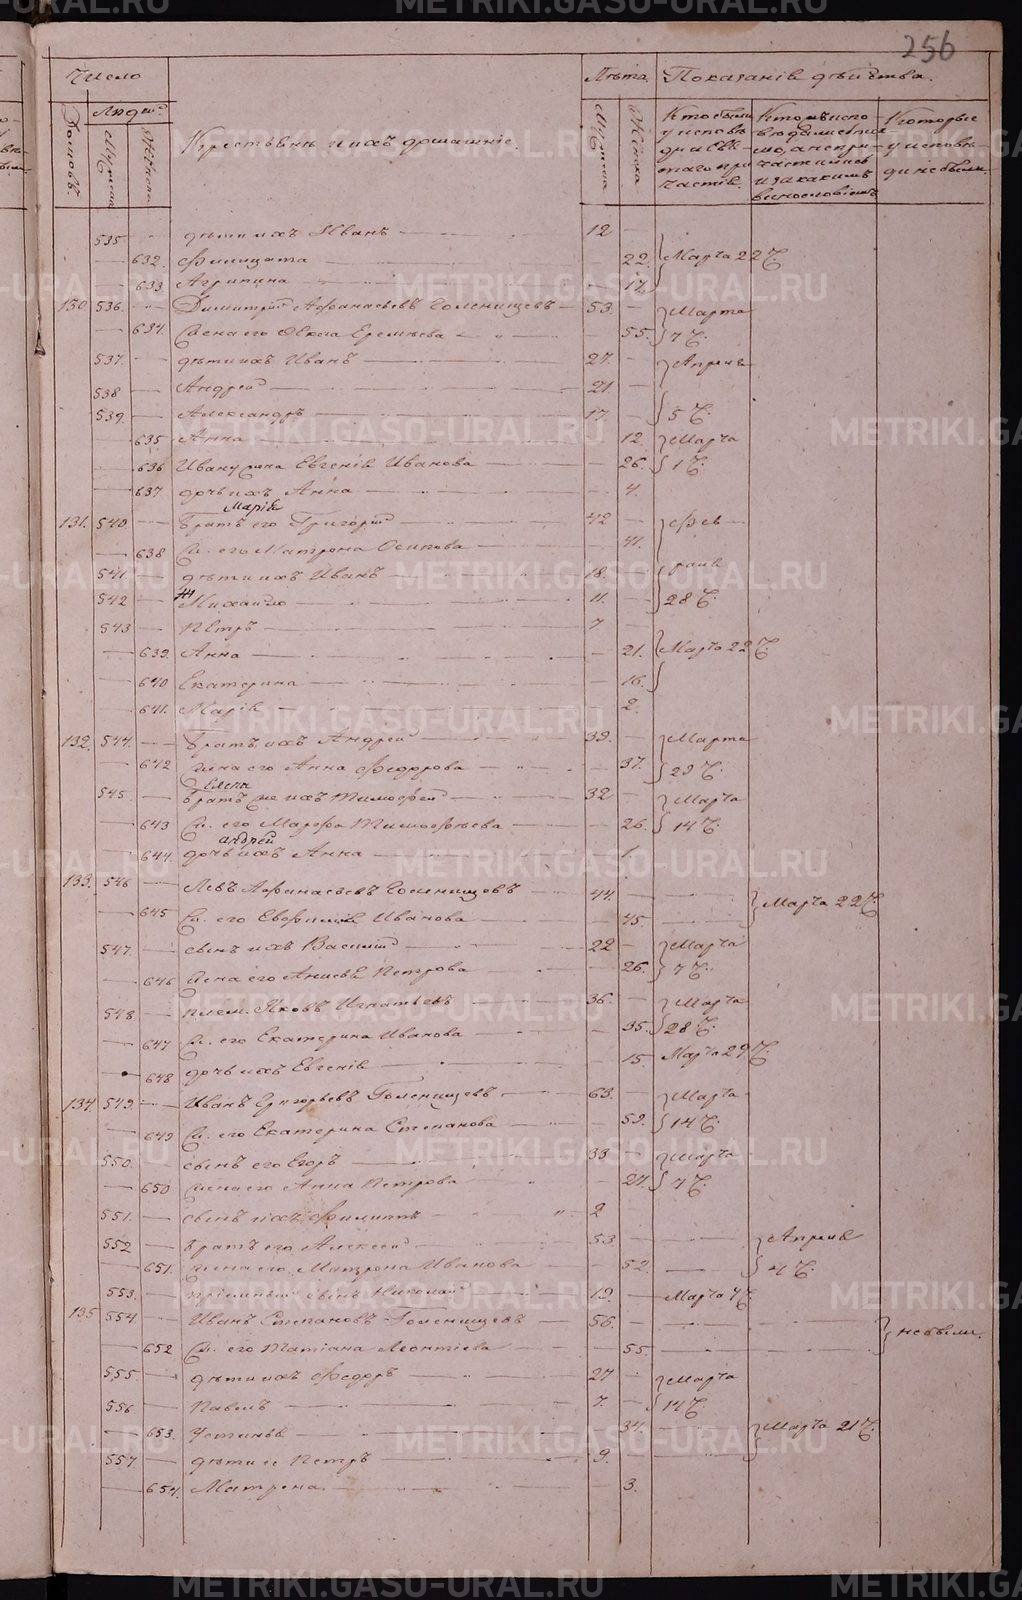 256
Число
Лѣта. Показанiе дѣйства.
Домовъ. Людей
Мужеска Женска
Крестьяне и ихъ домашнiе.
Мужеска Женска
Кто были у исповѣди и св. таго причастiя.
Кто исповѣдался
Которые у исповѣди не были.
535 — дѣти ихъ Иванъ — 12
632. Филицата — 22. Марта 22 Ч.
633 Агрипина — 17.
130. 536. Димитрiй Афанасьевъ Голенищевъ — 53. Марта
634. Жена его Фекла Еремѣева — 55. 7 Ч.
537. дѣти ихъ Иванъ — 27. Апрѣля
538 Андрей — 21
539. Александръ — 17. 5 Ч.
635 Анна — 12 Марта
636 Ивану жена Евгенiя Иванова — 26. 1 Ч.
637 дочь ихъ Анна — 4.
Марiя
131. 540 братъ его Григорiй — 42 Фев
638 Ж. его Матрона Осипова — 41. раля
541. дѣти ихъ Иванъ — 18.
542 Михаилъ — 11. 28 Ч.
543 Петръ — 7
639. Анна — 21. Марта 22 Ч.
640 Екатерина — 16.
641. Марiя — 2.
132. 544. братъ ихъ Андрей — 39. Марта
642 жена его Анна Федорова — 37. 29 Ч.
Елена
545. братъ же ихъ Тимофей — 32 Марта
643 Ж. его Марфа Тимофѣева — 26. 14 Ч.
андрей
644. дочь ихъ Анна — 1.
133. 546 Левъ Афанасьевъ Голенищевъ — 44. Марта 22 Ч.
645 Ж. его Евфимiя Иванова — 45.
547. сынъ ихъ Василiй — 22 Марта
646 жена его Анисья Петрова — 26. 7 Ч.
548. плем. Яковъ Игнатьевъ — 36. Марта
647 Ж. его Екатерина Иванова — 35. 28 Ч.
648 дочь ихъ Евгенiя — 15 Марта 29 Ч.
134. 549. Иванъ Григорьевъ Голенищевъ — 63. Марта
649 Ж. его Екатерина Степанова — 59. 14 Ч.
550. сынъ его Егоръ — 33 Марта
650 жена его Анна Петрова — 27. 7 Ч.
551. сынъ ихъ Филиппъ — 2
552 братъ его Алексей — 53. Апрѣля
651. жена его Матрона Иванова — 52. 4 Ч.
553. прiемный сынъ Николай — 19 Марта 7 Ч.
135 554 Иванъ Степановъ Голенищевъ — 56. не были.
652 Ж. его Татiана Леонтiева — 55.
555. дѣти ихъ Федоръ — 27 Марта
556. Павелъ — 7. 14 Ч.
653. Устинья — 34. Марта 21 Ч.
557. дѣти ее Петръ — 9.
654. Матрена — 3.
METRIKI.GASO-URAL.RU